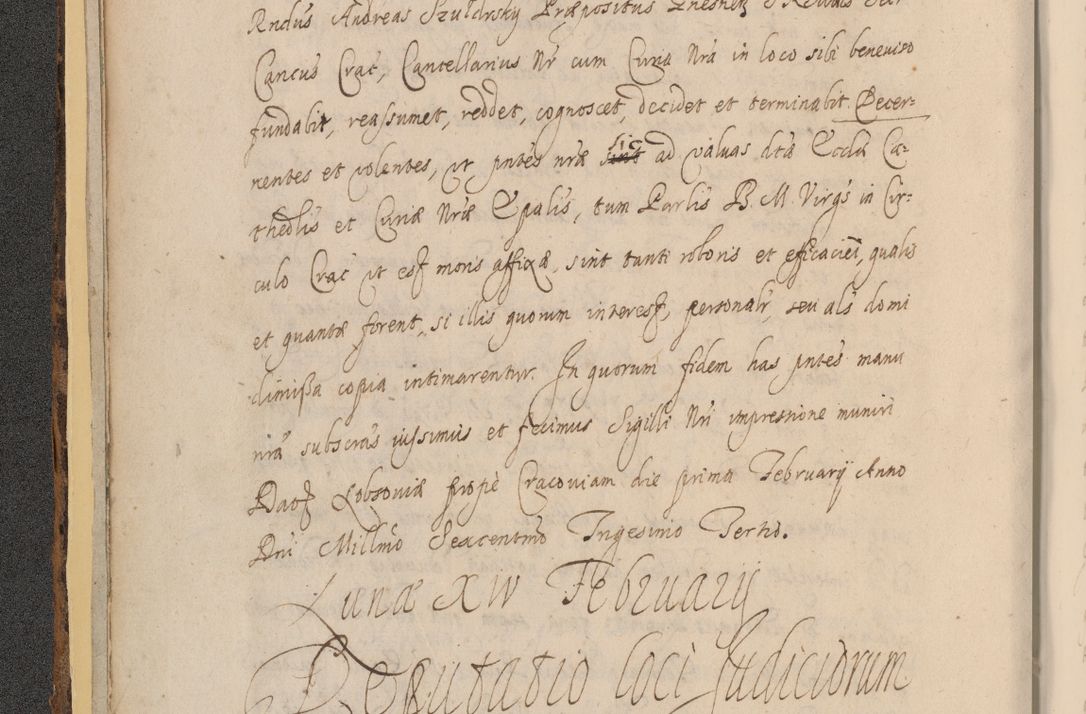 Rndus Andreas Szułdrsky Præpositus Gnesneñ S R Mtis
Cancus Crac, Cancellarius Nr cum Curia Nrā in loco sibi beneviso
fundabit, reassumet, reddet, cognoscet, decidet et terminabit. Decer=
nentes et volentes, ut pntes nræ sic ad valvas dtæ Ecclæ Ca=
thedlis et Curiæ Nræ Epalis, tum Parlis B. M. Virgs in Cir=
culo Crac ut est moris affixæ, sint tanti roboris et efficaciei, qualis
et quantæ forent, si illis quorum interest, personalr, seu als domi
dimissa copia intimarentur. In quorum fidem has pntes manu
nrā subscras iussimus et fecimus Sigilli Nri impressione muniri
Dat Lobzoviæ prope Cracoviam die prima Februarij Anno
Dni Millmo Sexcentmo Trigesimo Tertio.
Lunæ XIV Februarij
Deputatio loci Judiciorum